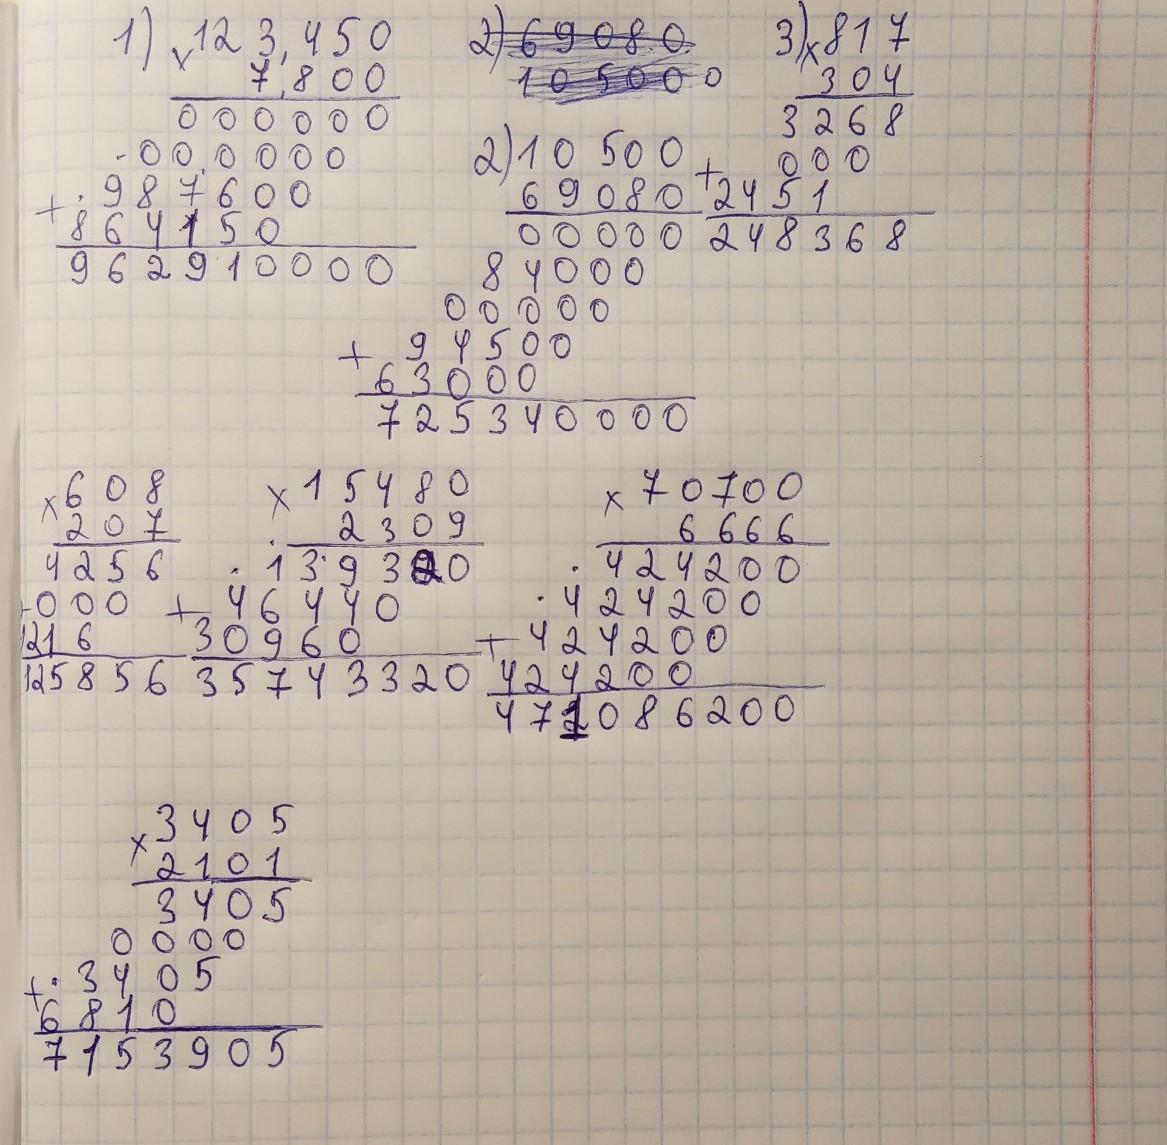 1) × 123,450
7,800
000000
.000000
+ .987600
864150
962910000
2) 69080
105000
2) 10500
69080
00000
84000
00000
+ 94500
63000
725340000
3) × 817
304
3268
+ 000
2451
248368
× 608
207
4256
+000
1216
125856
× 15480
2309
.139320
+ 46440
30960
35743320
× 70700
6666
.424200
.424200
+ 424200
424200
471086200
× 3405
2101
3405
0000
+ .3405
6810
7153905